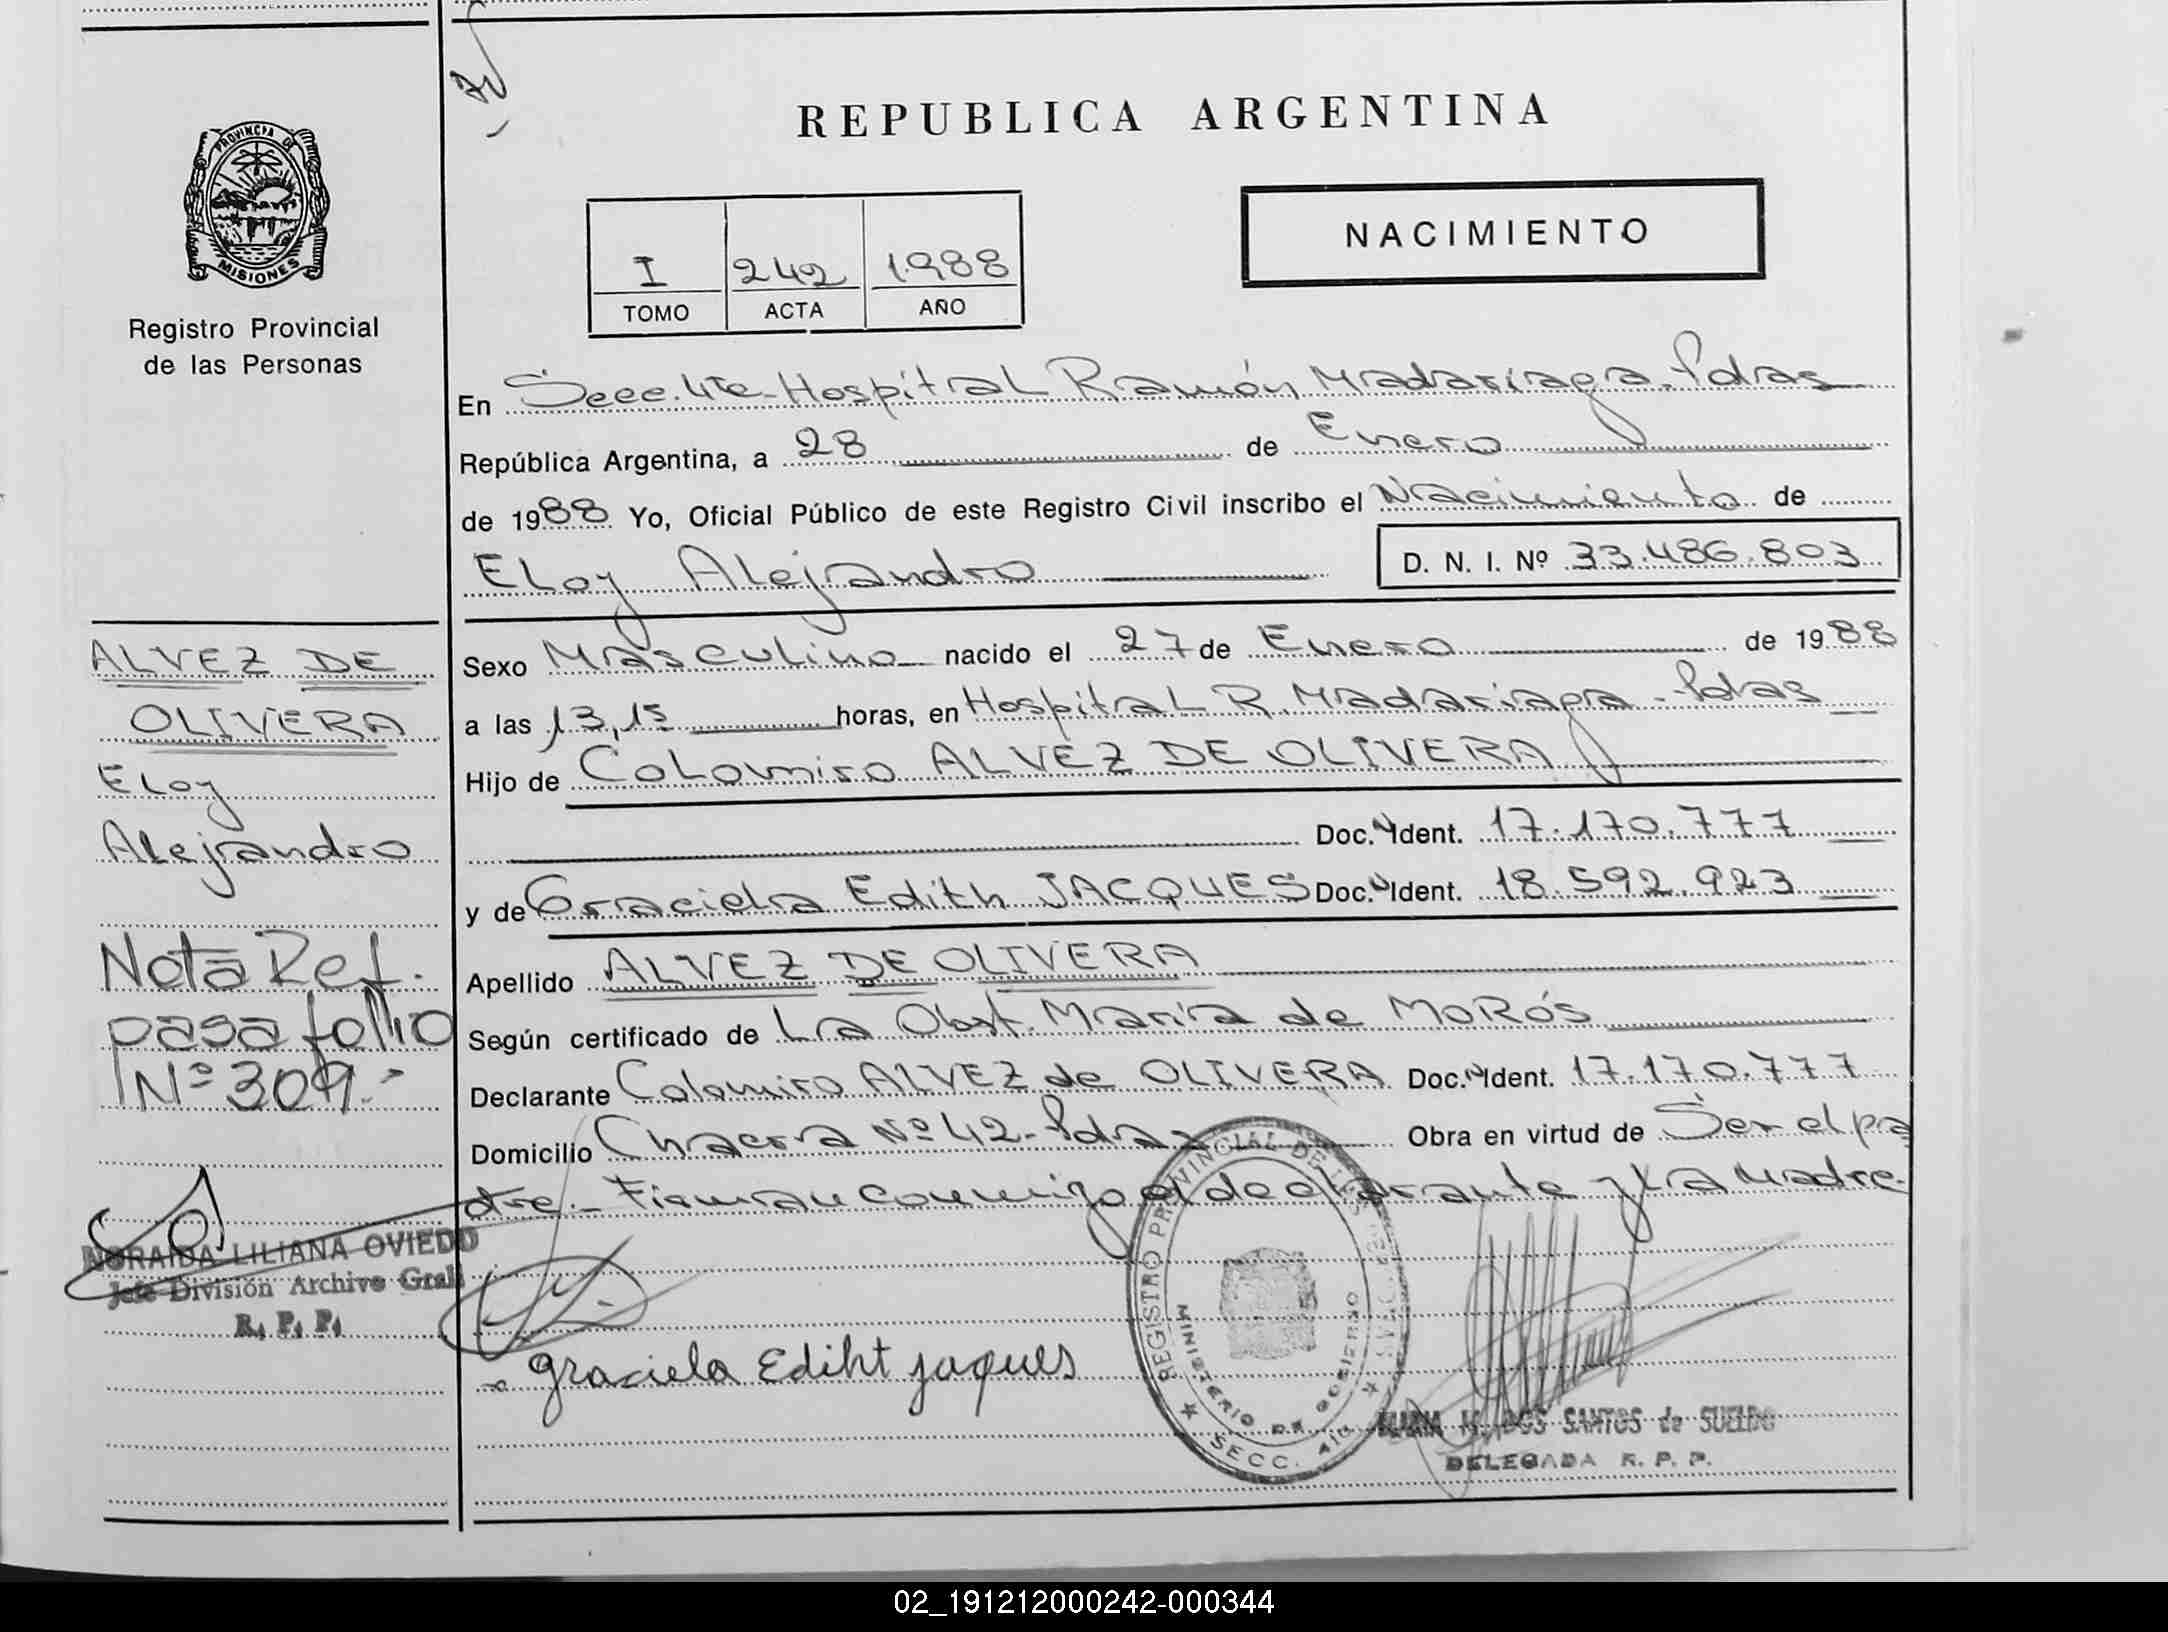 REPUBLICA ARGENTINA
PROVINCIA DE
MISIONES
Registro Provincial
de las Personas
NACIMIENTO
I 242 1988
TOMO ACTA AÑO
En Secc. 4ta - Hospital Ramón Madariaga - Pdas
República Argentina, a 28 de Enero
de 1988 Yo, Oficial Público de este Registro Civil inscribo el Nacimiento de
Eloy Alejandro D. N. I. Nº 33.486.803
Sexo Masculino nacido el 27 de Enero de 1988
a las 13,15 horas, en Hospital R. Madariaga - Pdas
Hijo de Colomiro ALVEZ DE OLIVERA
Doc. Ident. 17.170.777
y de Graciela Edith JACQUES Doc. Ident. 18.592.923
Apellido ALVEZ DE OLIVERA
Según certificado de La Obst. María de MoRós
Declarante Colomiro ALVEZ de OLIVERA Doc. Ident. 17.170.777
Domicilio Chacra Nº 42 - Pdas Obra en virtud de Ser el pa
dre.- Firman conmigo el declarante y la Madre.
graciela Ediht jaques
REGISTRO PROVINCIAL DE LAS PERSONAS
MINISTERIO DE GOBIERNO
SECC. 4ta
MARIA M. DOS SANTOS de SUELDO
DELEGADA R. P. P.
ALVEZ DE
OLIVERA
Eloy
Alejandro
Nota Ref.
pasa folio
Nº 309.-
NORAIDA LILIANA OVIEDO
Jefe División Archivo Gral.
R. P. P.
02_191212000242-000344